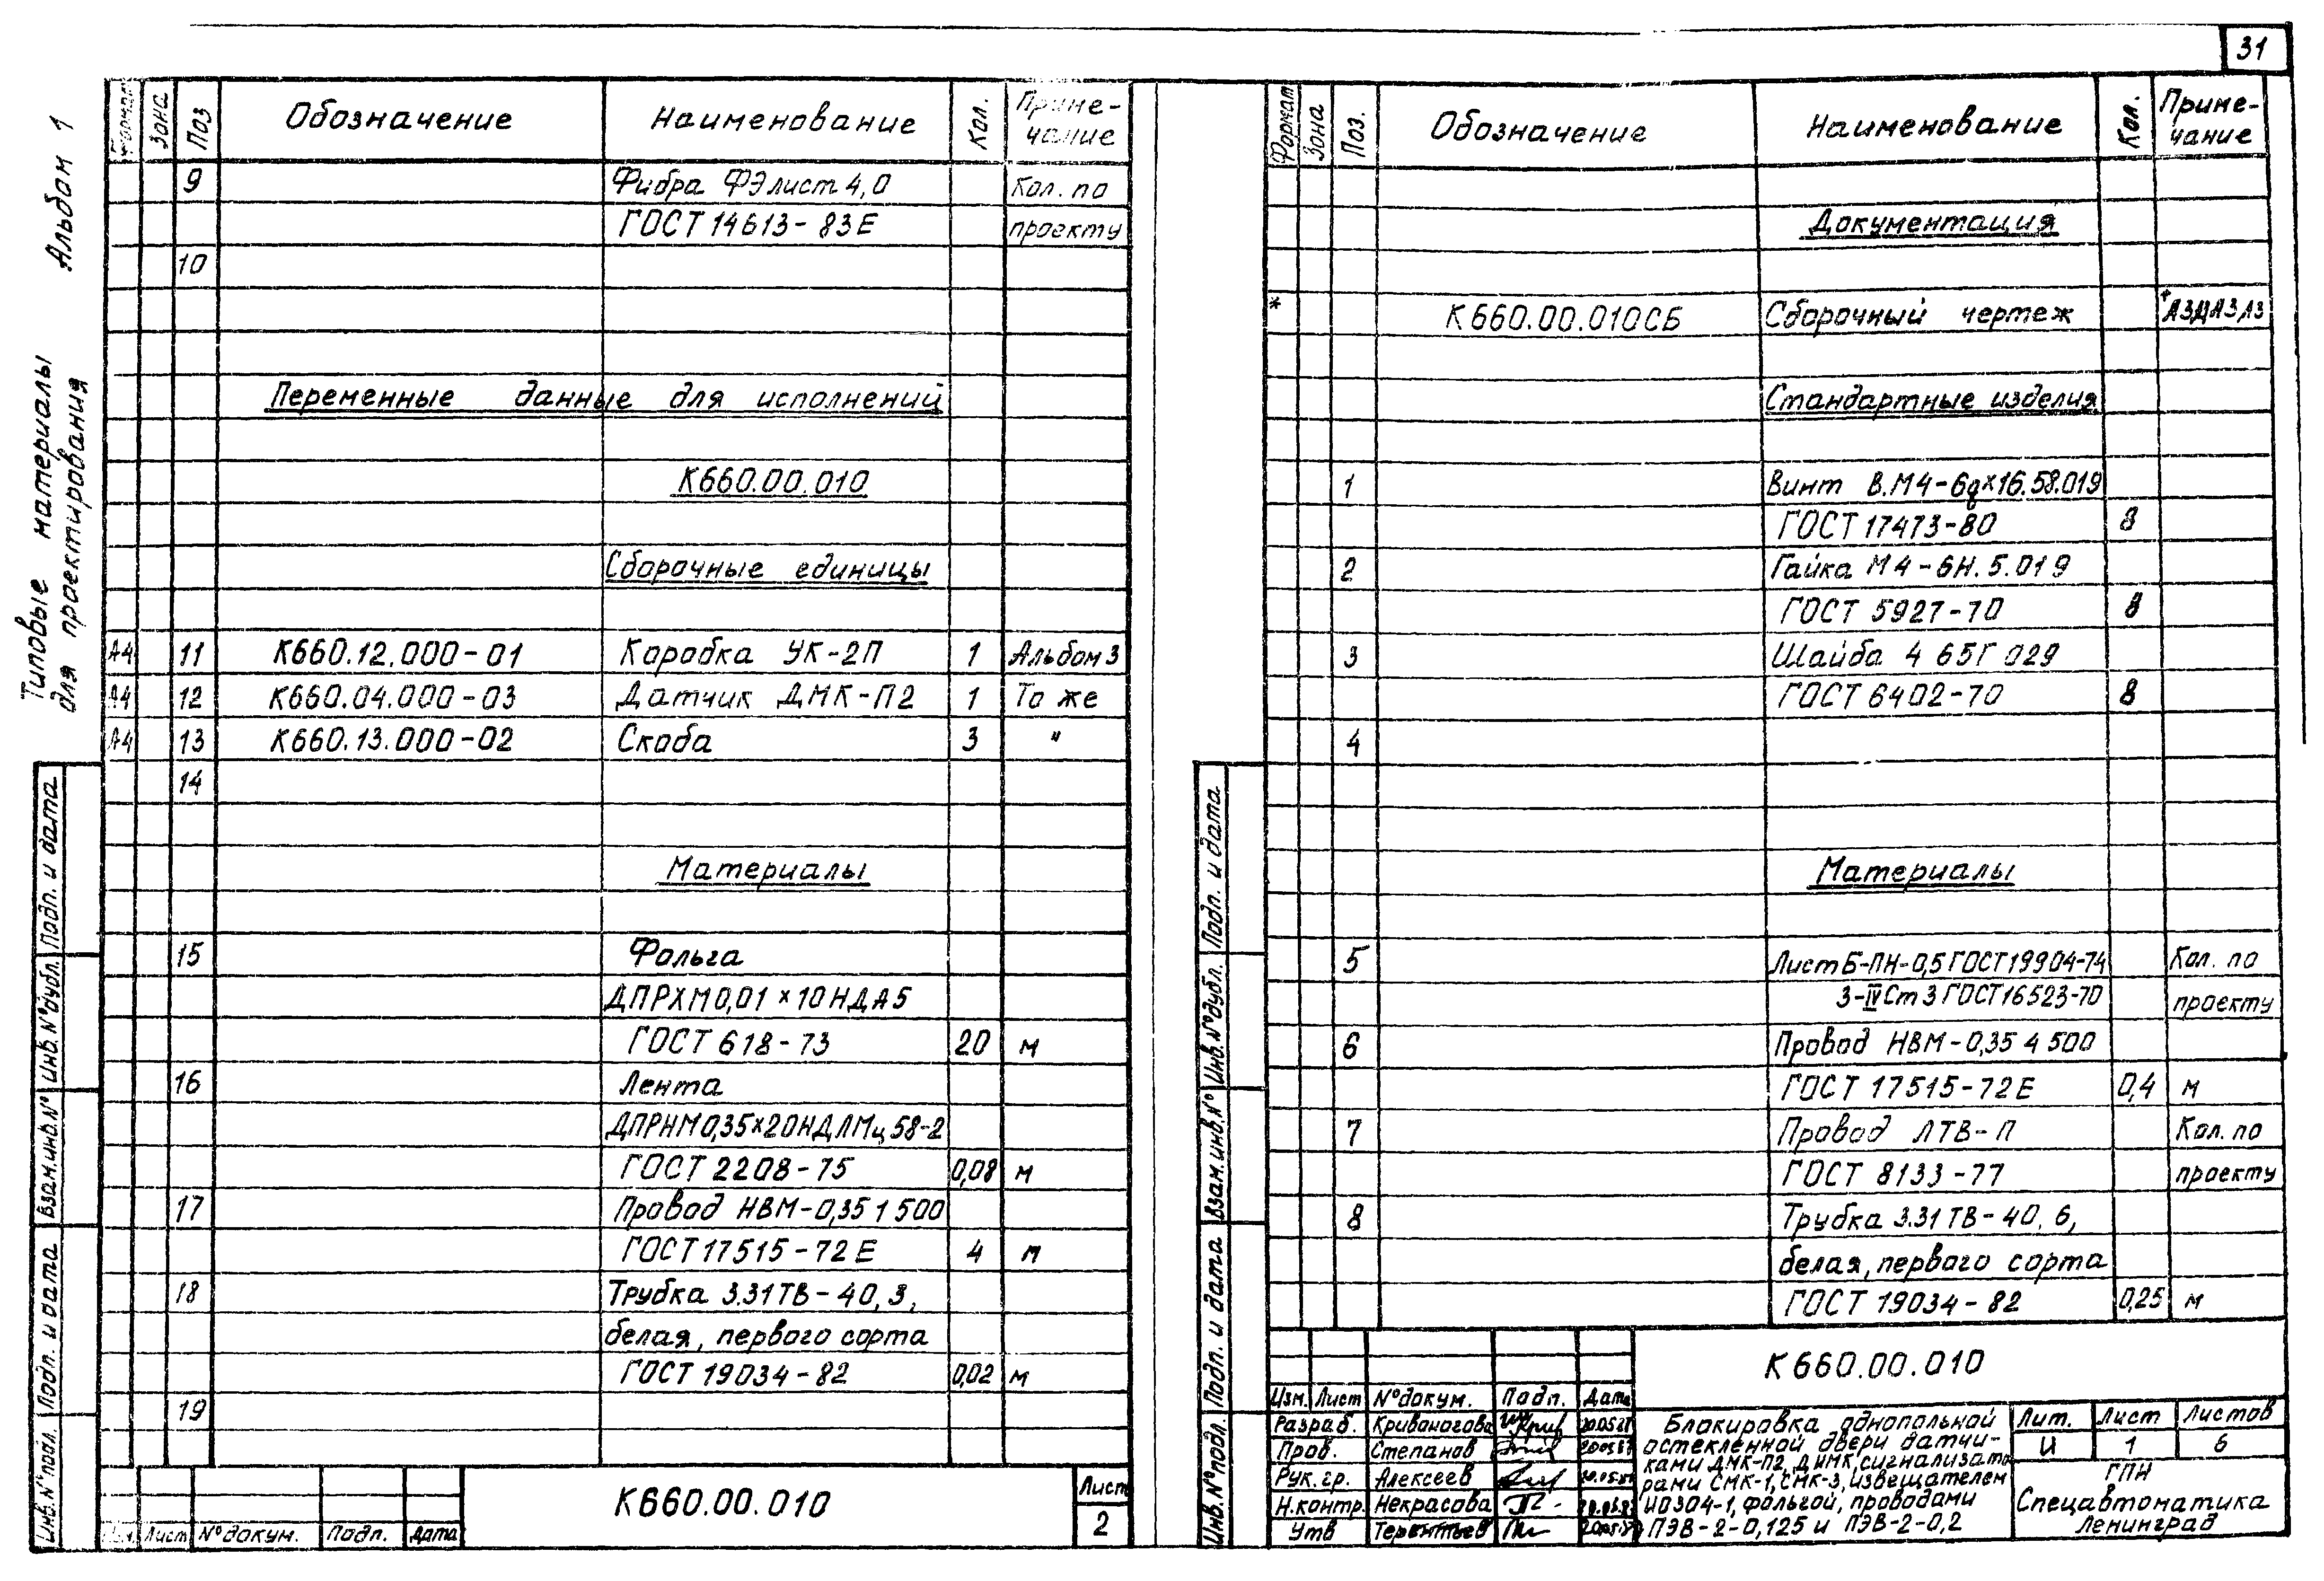 31
Альбом 1
Типовые материалы
для проектирования
Формат Зона Поз Обозначение Наименование Кол. Приме-
чание
9 Фибра ФЭ лист 4,0 Кол. по
ГОСТ 14613-83Е проекту
10
Переменные данные для исполнений
К660.00.010
Сборочные единицы
А4 11 К660.12.000-01 Коробка УК-2П 1 Альбом 3
А4 12 К660.04.000-03 Датчик ДМК-П2 1 То же
А4 13 К660.13.000-02 Скоба 3 "
14
Материалы
15 Фольга
ДПРХМ0,01×10НДА5
ГОСТ 618-73 20 м
16 Лента
ДПРНМ0,35×20НДЛМц58-2
ГОСТ 2208-75 0,08 м
17 Провод НВМ-0,35 1 500
ГОСТ 17515-72Е 4 м
18 Трубка 3.31ТВ-40, 3,
белая, первого сорта
ГОСТ 19034-82 0,02 м
19
Изм. Лист № докум. Подп. Дата
К660.00.010
Лист
2
Инв. № подл. Подп. и дата Взам. инв. № Инв. № дубл. Подп. и дата
Формат Зона Поз. Обозначение Наименование Кол. Приме-
чание
Документация
* К660.00.010СБ Сборочный чертеж *А3ДА3,А3
Стандартные изделия
1 Винт В.М4-6g×16.58.019
ГОСТ 17473-80 8
2 Гайка М4-6Н.5.019
ГОСТ 5927-70 8
3 Шайба 4 65Г 029
ГОСТ 6402-70 8
4
Материалы
5 Лист Б-ПН-0,5 ГОСТ 19904-74 Кол. по
3-IV Ст 3 ГОСТ 16523-70 проекту
6 Провод НВМ-0,35 4 500
ГОСТ 17515-72Е 0,4 м
7 Провод ЛТВ-П Кол. по
ГОСТ 8133-77 проекту
8 Трубка 3.31ТВ-40, 6,
белая, первого сорта
ГОСТ 19034-82 0,25 м
К660.00.010
Изм. Лист № докум. Подп. Дата
Разраб. Кривоногова
Пров. Степанов
Рук. гр. Алексеев
Н.контр. Некрасова
Утв Терентьев
Блокировка однопольной
остекленной двери датчи-
ками ДМК-П2, ДИМК, сигнализато
рами СМК-1, СМК-3, извещателем
ИО304-1, фольгой, проводами
ПЭВ-2-0,125 и ПЭВ-2-0,2
Лит. Лист Листов
И 1 6
ГПИ
Спецавтоматика
Ленинград
Инв. № подл. Подп. и дата Взам. инв. № Инв. № дубл. Подп. и дата